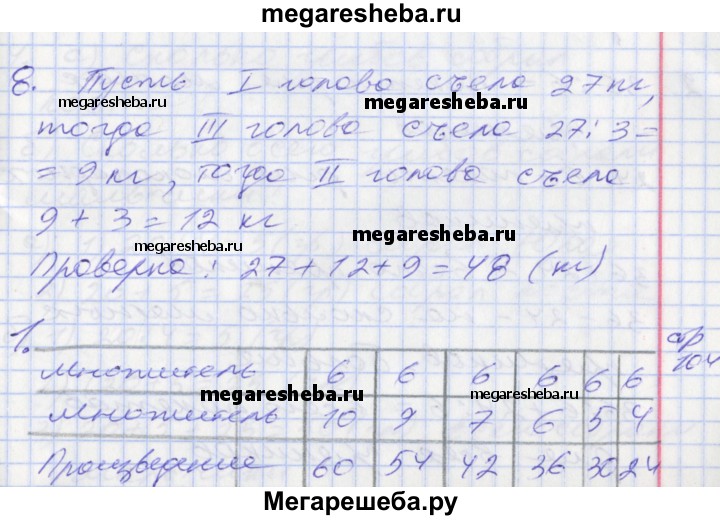 megaresheba.ru
8. Пусть I голова съела 27 кг,
megaresheba.ru
megaresheba.ru
тогда III голова съела 27 : 3 =
= 9 кг, тогда II голова съела
9 + 3 = 12 кг
megaresheba.ru
megaresheba.ru
Проверка : 27 + 12 + 9 = 48 (кг)
1.
стр
104
Множитель 6 6 6 6 6 6
megaresheba.ru
megaresheba.ru
Множитель 10 9 7 6 5 4
Произведение 60 54 42 36 30 24
Мегарешеба.ру